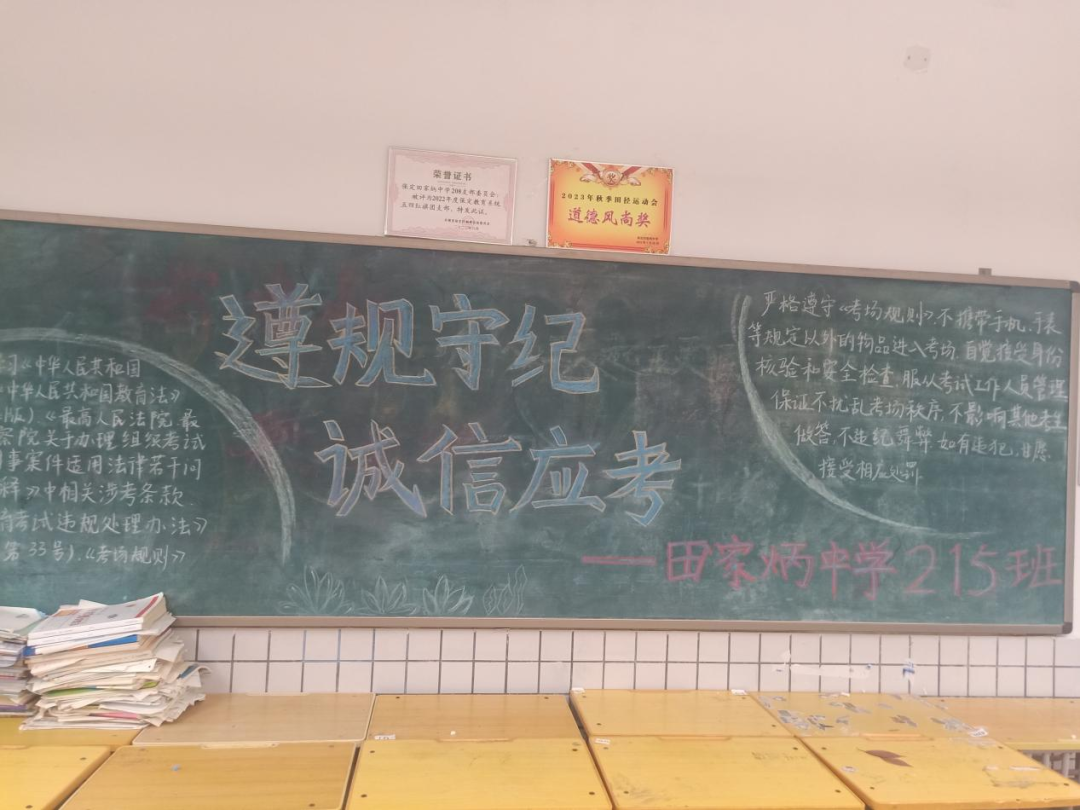 荣誉证书
保定田家炳中学208支部委员会:
被评为2022年度保定教育系统
五四红旗团支部,特发此证。
奖
2023年秋季田径运动会
道德风尚奖
遵规守纪
诚信应考
——田家炳中学215班
《中华人民共和国
中华人民共和国教育法》
版)《最高人民法院 最
察院关于办理组织考试
事案件适用法律若干问
释》中相关涉考条款
考试违规处理办法》
第33号),《考场规则》
严格遵守《考场规则》,不携带手机、手表
等规定以外的物品进入考场.自觉接受身份
核验和安全检查.服从考试工作人员管理
保证不扰乱考场秩序,不影响其他考生
做答,不违纪舞弊.如有违犯,甘愿
接受相应处罚.